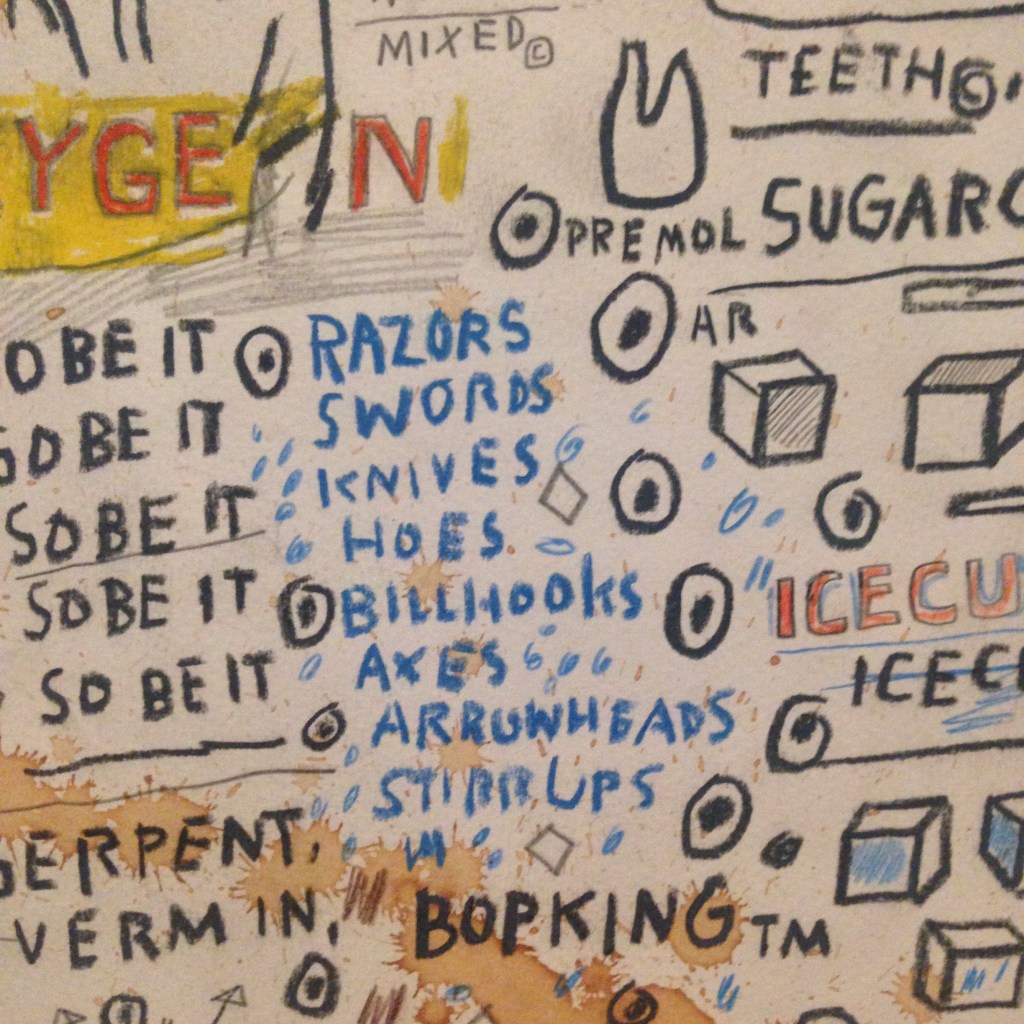 MIXED©
TEETH©.
YGEN
PREMOL
SUGARC
AR
O BE IT
RAZORS
SWORDS
SO BE IT
KNIVES
SO BE IT
HOES
SO BE IT
BILLHOOKS
"ICECU
AXES
SO BE IT
ICECU
ARROWHEADS
STIRRUPS
SERPENT,
VERMIN,
BOPKING TM